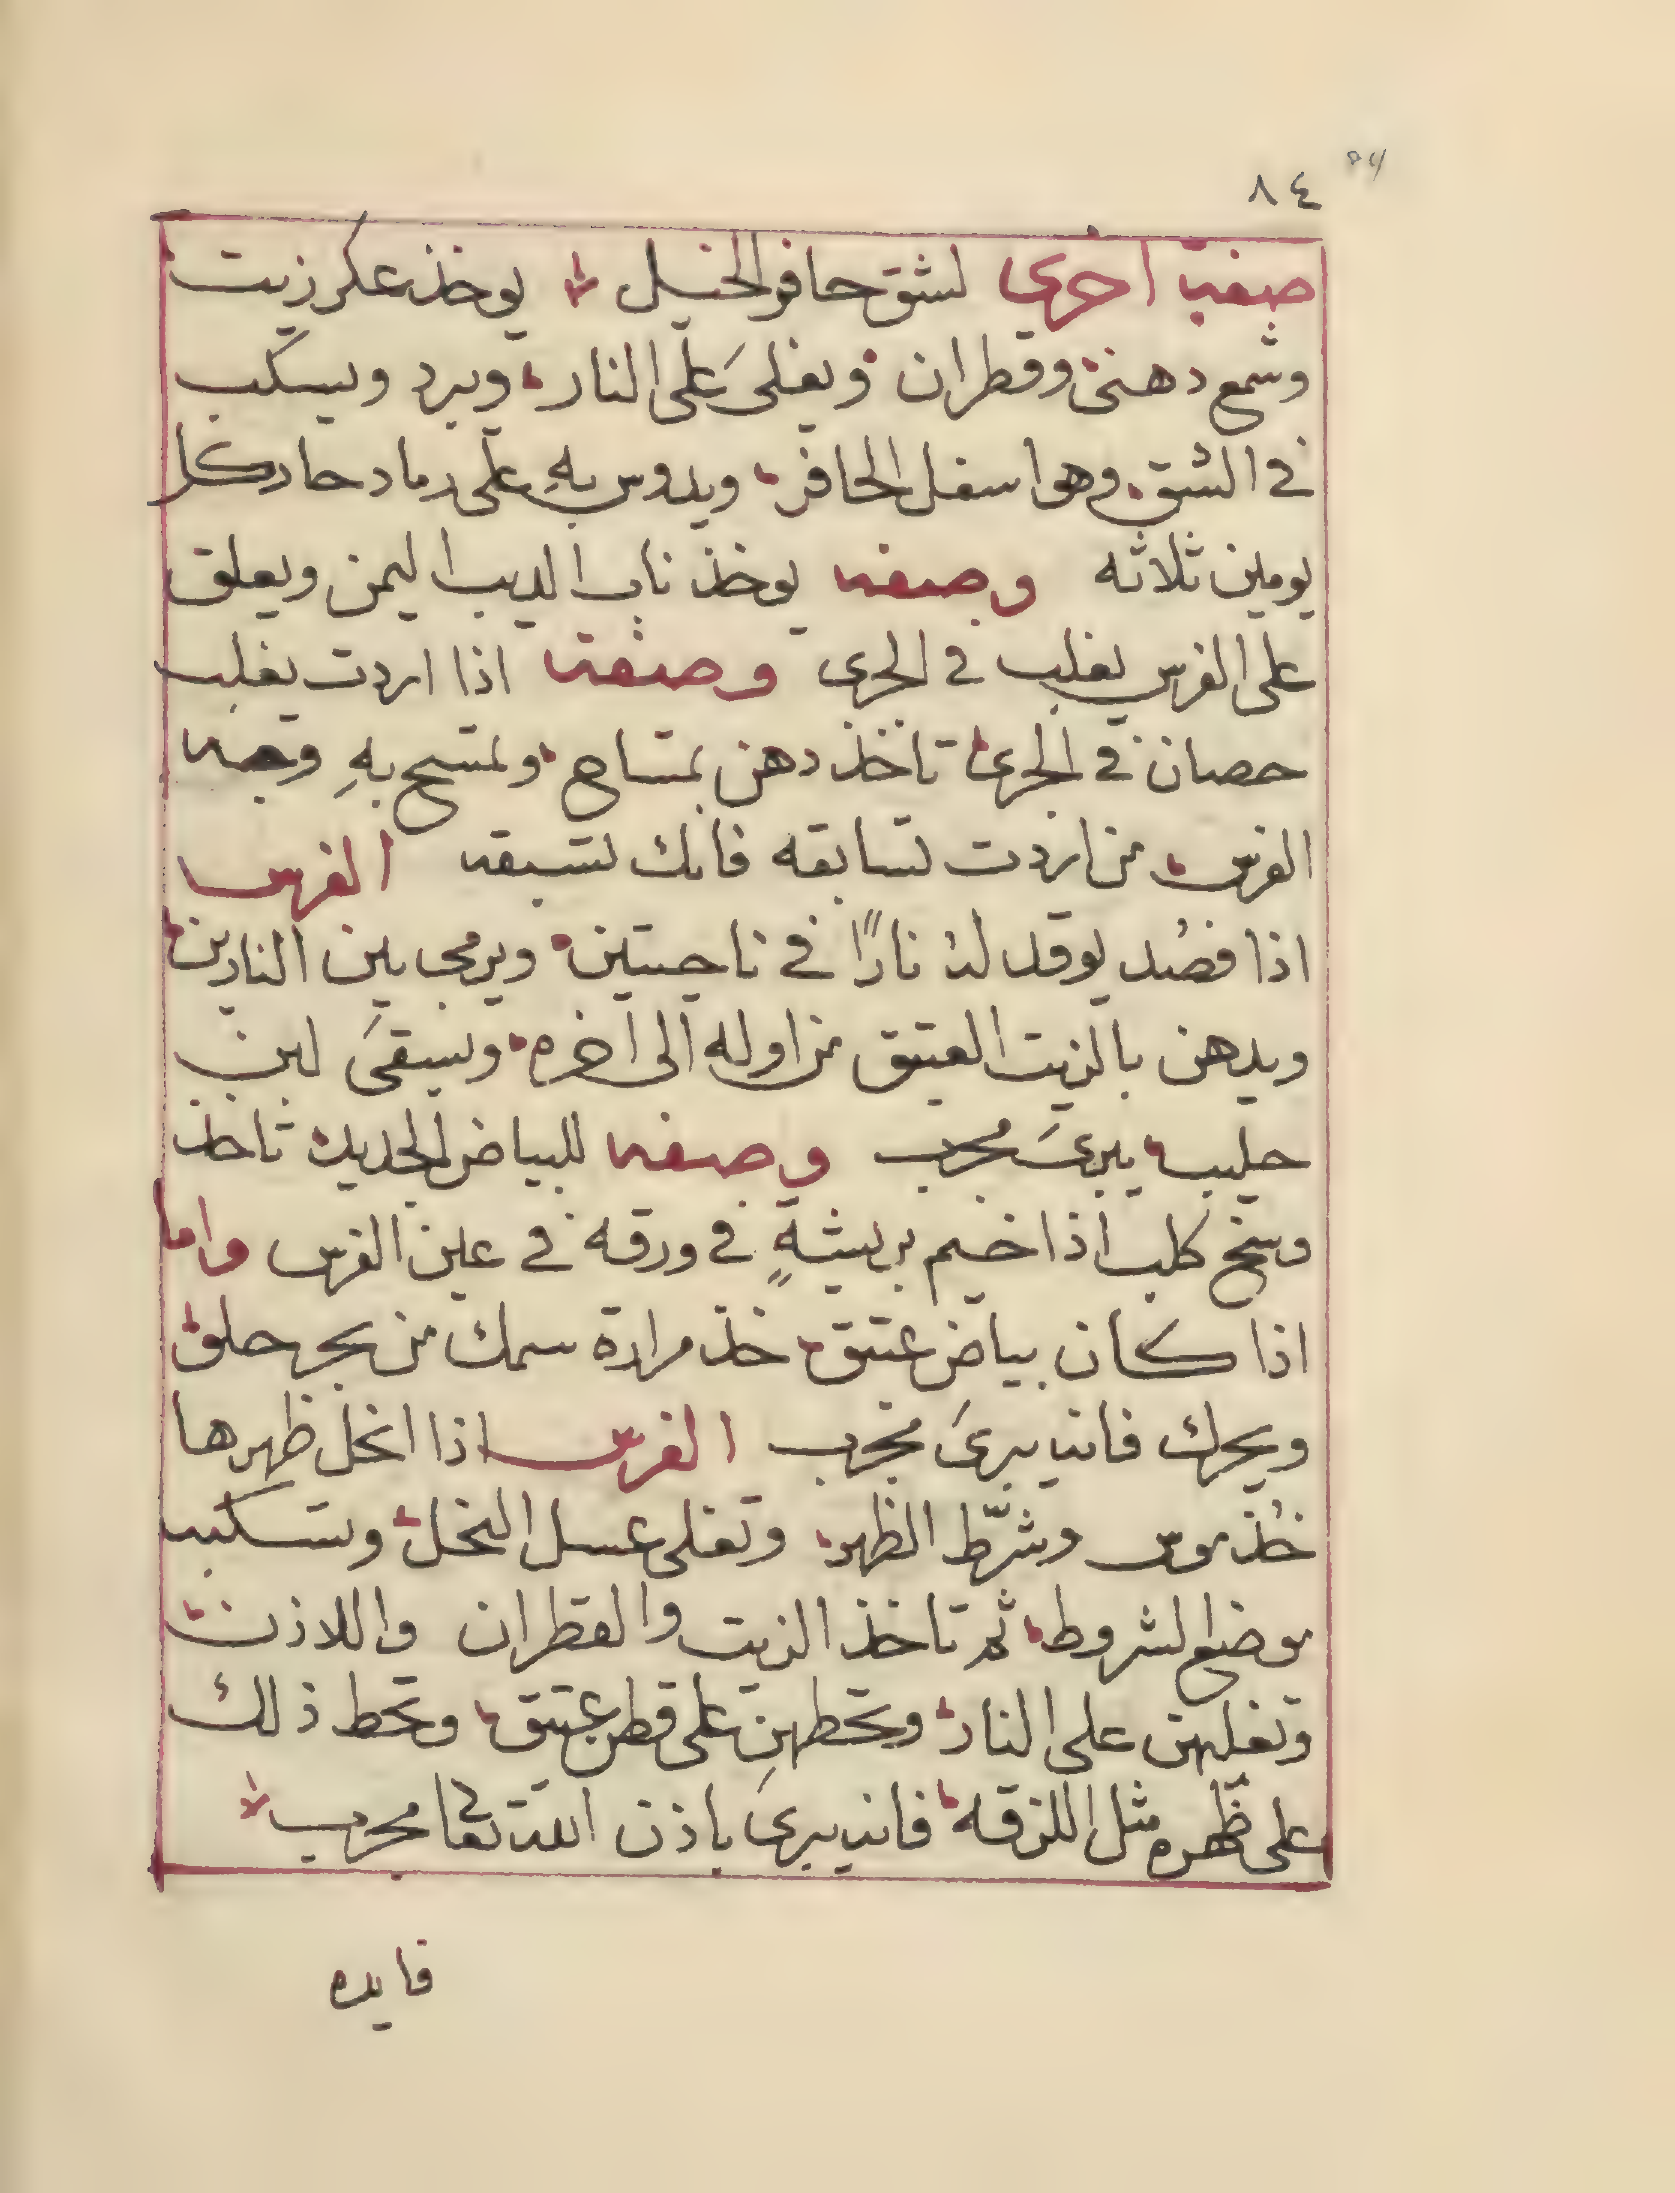 ٨٤
صفة اخرى لشق حافر الخيل يوخذ عكر زيت
وشمع دهنى وقطران ويغلىَ على النار ويبرد ويسكب
فى الشق وهو اسفل الحافر ويدوس بهِ على رماد حار كل
يومين ثلاثه وصفه يوخذ ناب الديب اليمن ويعلق
على الفرس يغلب فى الجرى وصفة اذا اردت يغلب
حصان فى الجرى تاخذ دهن تمساح وتمسح بهِ وجه
الفرس من اردت تسابقه فانك تسبقه الفرس
اذا فصُد يوقد لهُ نارًا فى ناحيتين ويرمح بين النارين
ويدهن بالزيت العتيق من اوله الى اخره ويسقىَ لبن
حليب يبرىَ مجرب وصفه للبياض الجديد تاخذ
وسخ كلب اذا خيم بريشةٍ فى ورقه فى عين الفرس واما
اذا كان بياض عتيق خذ مرارة سمك من بحر حلو
ويحرك فانه يبرىَ مجرب الفرس اذا انحل ظهرها
خُذ موس وشرّط الظهر وتغلى عسل النحل وتسكب
موضع الشروط ثم تاخذ الزيت والقطران واللاذن
وتغليهن على النار وتحطهن على قطن عتيق وتحط ذلك
على ظهره مثل اللزقه فانه يبرىَ باذن الله تعا مجرب
فايده